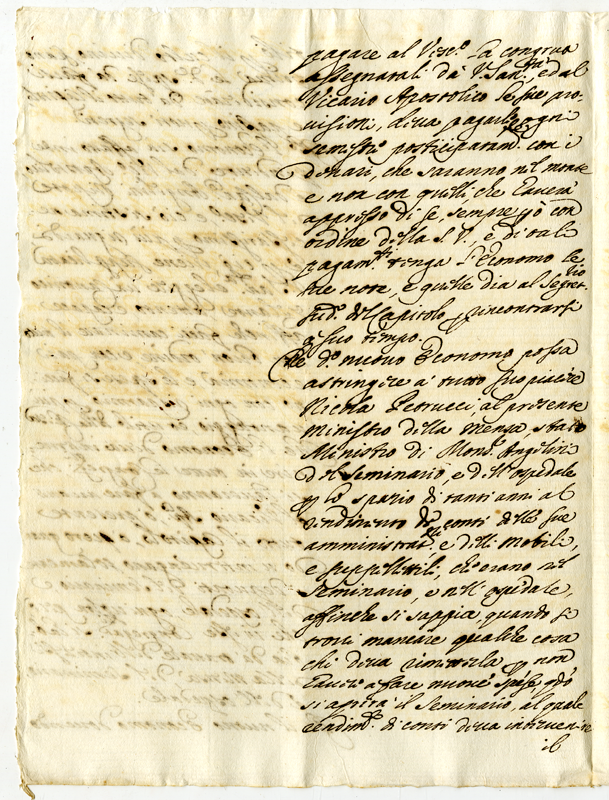 pagare al Vesc.º la congrua
assegnatali da V. San.tà, ed al
Vicario Apostolico le sue pro-
visioni, deva pagarle ogni
semestre posticipatam.te con i
denari, che saranno nel monte
e non con quelli, che haverà
appresso di se, sempre però con
ordine della S. V., e di tali
pagam.ti tenga l'Economo le
sue note, e quelle dia al Segret.rio
sud.º del Capitolo per incontrarsi
a suo tempo.
Che d.º nuovo Economo possa
astringere a tutto suo piacere
Nicola Petrucci, al presente
Ministro della Mensa, stato
Ministro di Mons.r Angelini
del Seminario, e dell'ospedale
per lo spatio di tanti anni al
rendimento de conti delle sue
amministrat.ni e delli mobili,
e suppellettili, che erano nel
Seminario, e nell'ospedale,
affinche si sappia, quando si
trovi mancare qualche cosa
chi deva rimetterla per non
haver a fare nuove spese q.do
si aprirà il Seminario, al quale
rendim.to di conti deva intervenire
il